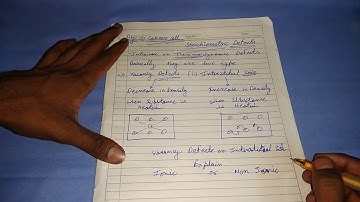 Stoichiometric Defects
Intrinsic or Thermodynamic Defects
Basically they are two type
(i) Vacancy Defects (ii) Interstitial
Decrease in Density Increase in Density
when Substance is when Substance is
heated heated
Vacancy Defects or Interstitial
Explain
Ionic or Non Ionic